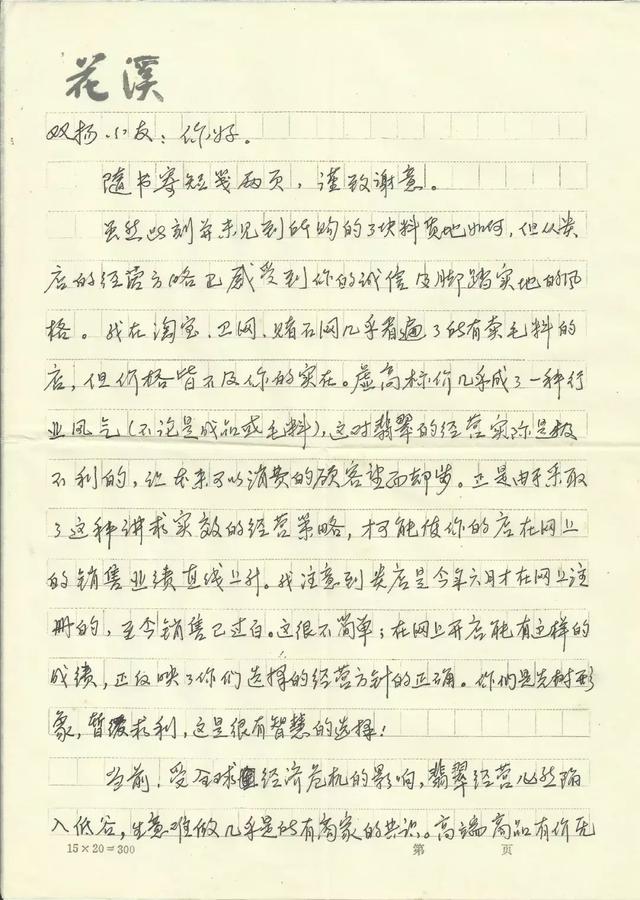 花溪
双扬小友：你好。
随书寄短笺两页，谨致谢意。
虽然此刻并未见到所购的3块料质地如何，但从贵
店的经营方略已感受到你的诚信及脚踏实地的风
格。我在淘宝、卫网、赌石网几乎看遍了所有卖毛料的
店，但价格皆不及你的实在。虚高标价几乎成了一种行
业风气（不论是成品或毛料），这对翡翠的经营实际是极
不利的，让本来可以消费的顾客望而却步。正是由于采取
了这种讲求实效的经营策略，才能使你的店在网上
的销售业绩直线上升。我注意到贵店是今年六月才在网上注
册的，至今销售已过百。这很不简单；在网上开店能有这样的
成绩，正反映了你们选择的经营方针的正确。你们是先树形
象，暂缓求利，这是很有智慧的选择！
当前，受全球经济危机的影响，翡翠经营必然陷
入低谷，生意难做几乎是所有商家的共识。高端商品有价无
15×20=300 第 页